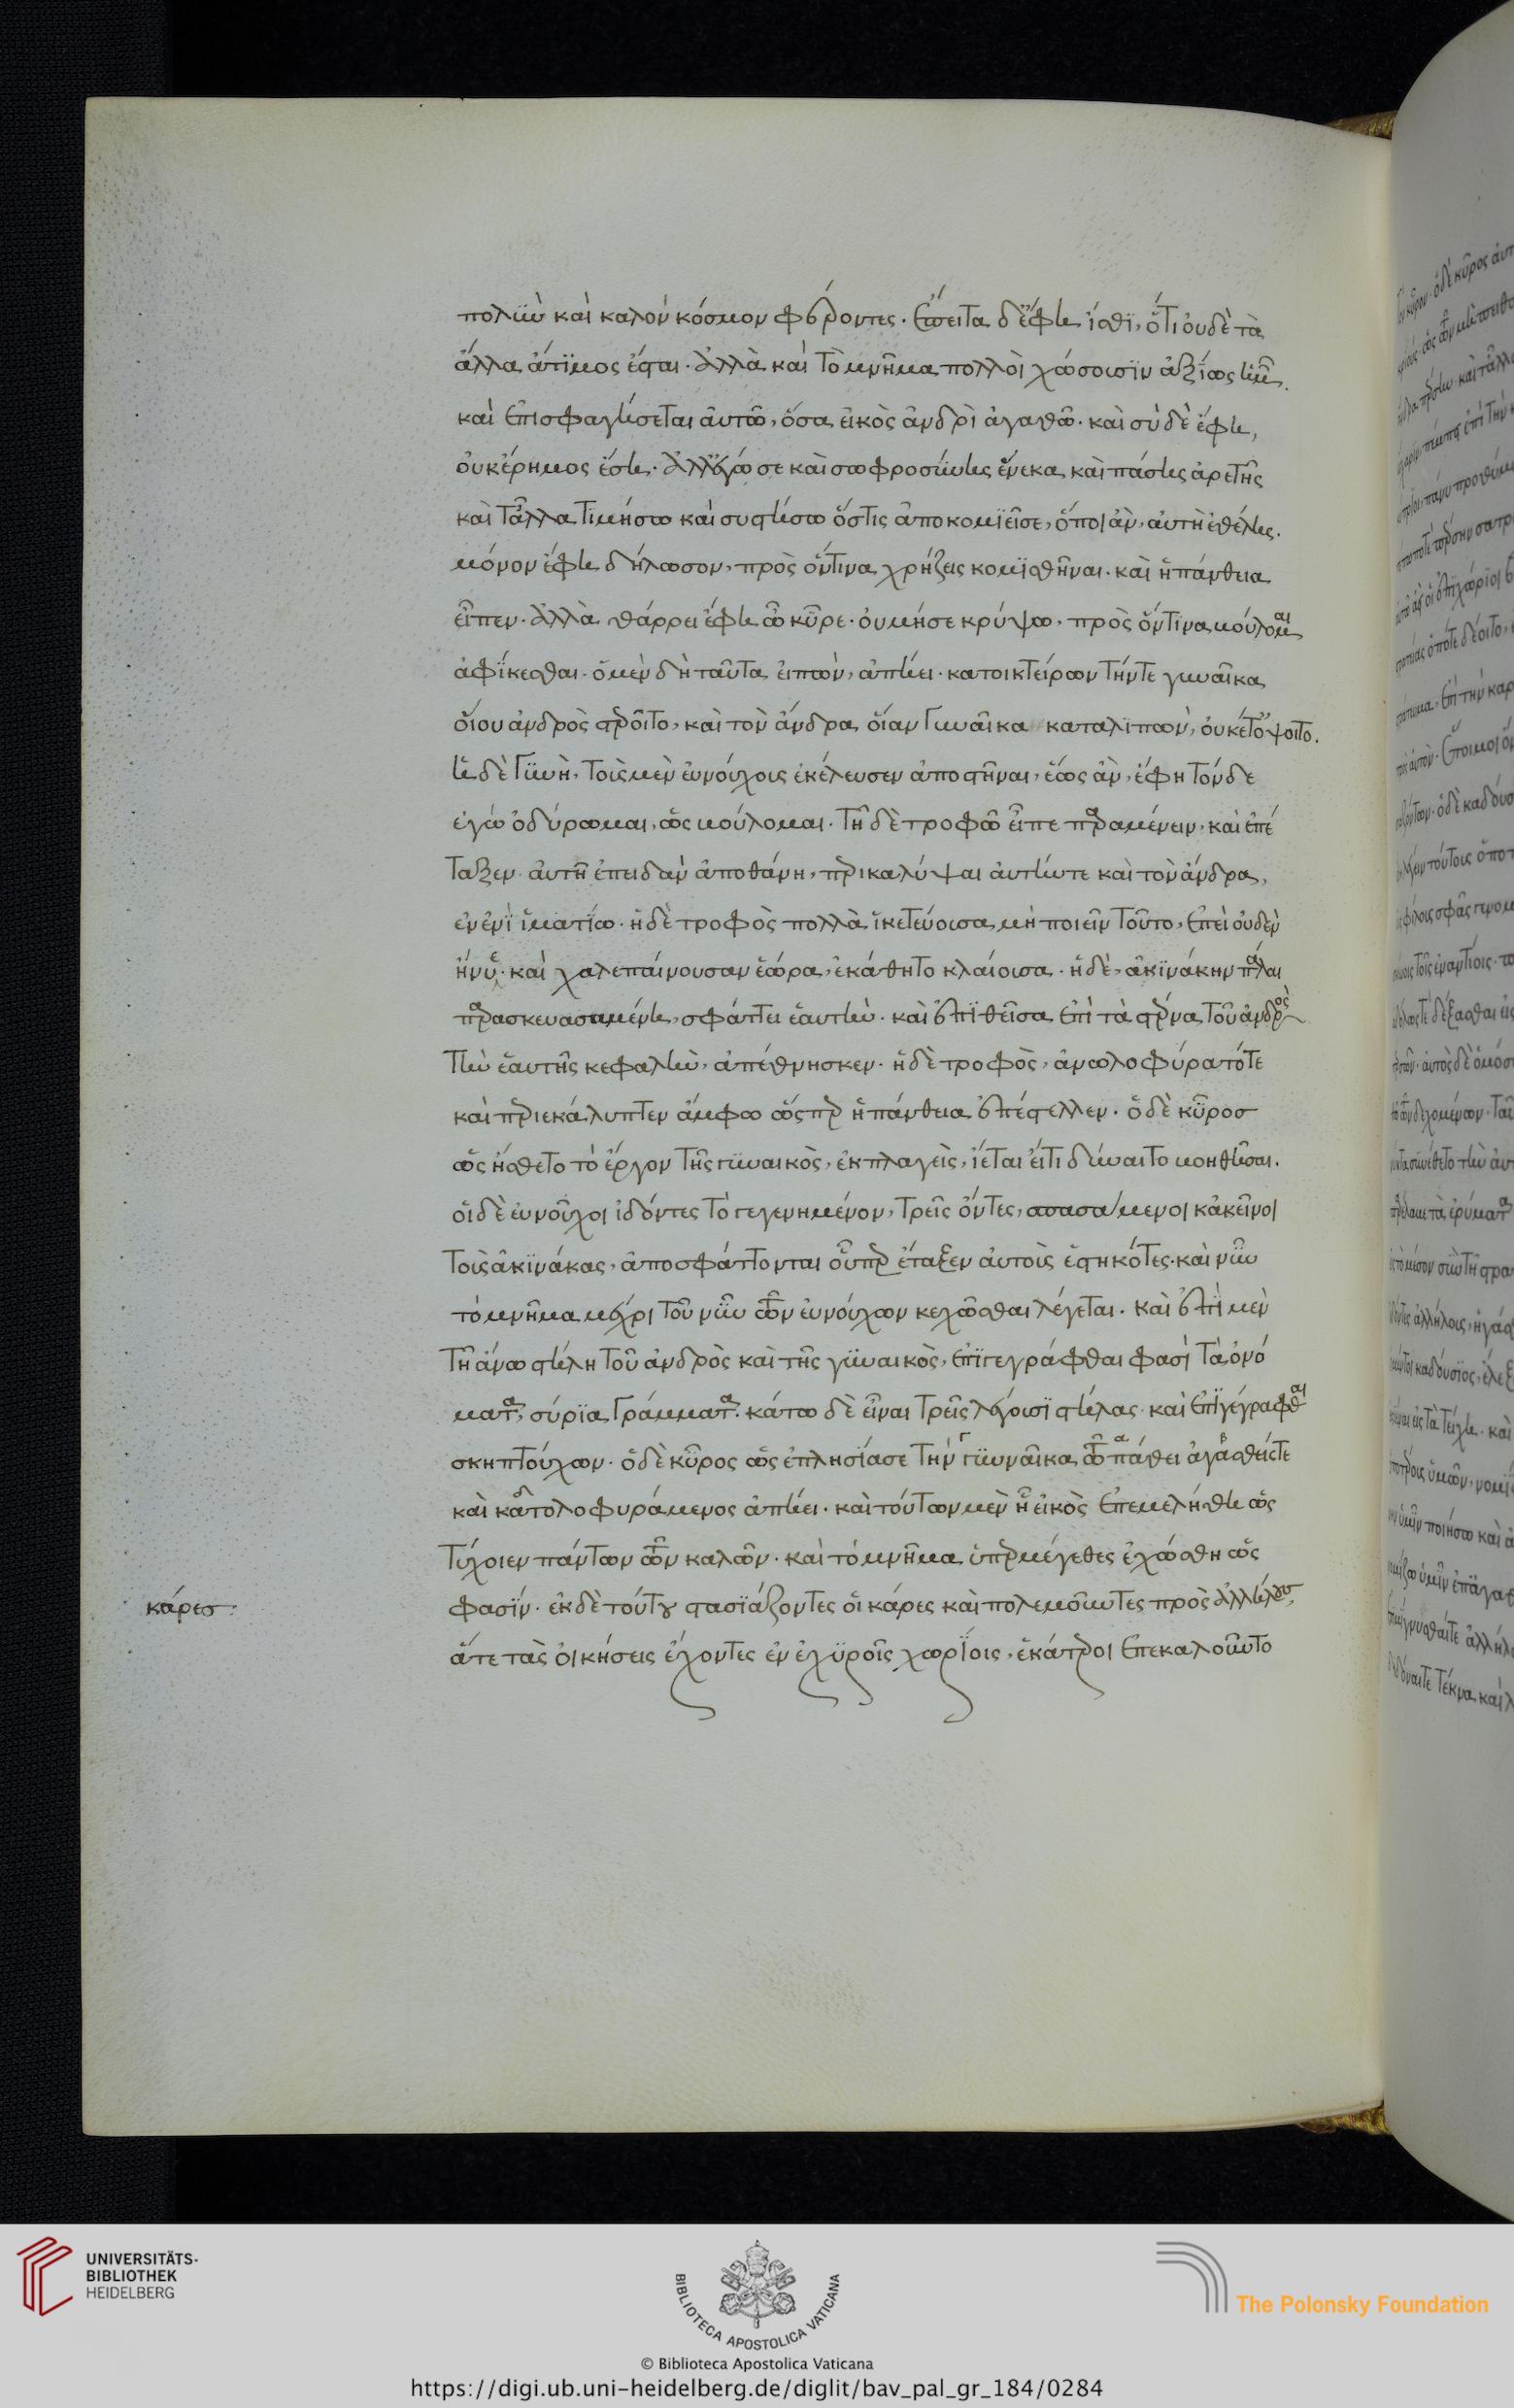 πολὺν καὶ καλὸν κόσμον φέροντες. ἔπειτα δ' ἔφη ἴσθϊ, ὅτι οὐδὲ τὰ
ἄλλα ἄτϊμος ἔσται. ἀλλὰ καὶ τὸ μνῆμα πολλοὶ χώσουσϊν ἀξίως ἡμῶν.
καὶ ἐπισφαγήσεται αὐτῶ, ὅσα εἰκὸς ἀνδρὶ ἀγαθῶ. καὶ σὺ δὲ ἔφη,
οὐκ ἔρημος ἔση. ἀλλ' ἐγώ σε καὶ σωφροσύνης ἕνεκα καὶ πάσης ἀρετῆς
καὶ τἆλλα τιμήσω καὶ συστήσω ὅστις ἀποκομϊεῖ σε, ὅποι ἂν, αὐτὴ ἐθέλης.
μόνον ἔφη δήλωσον, πρὸς ὅντινα χρήζεις κομϊσθῆναι. καὶ ἡ πάνθεια
εἶπεν. ἀλλὰ θάρρει ἔφη ὦ κῦρε. οὐ μή σε κρύψω, πρὸς ὅντινα βούλομαι
ἀφϊκέσθαι. ὁ μὲν δὴ ταῦτα εἰπὼν, ἀπήει. κατοικτείρων τήν τε γυναῖκα
οἵου ἀνδρὸς στέροιτο, καὶ τὸν ἄνδρα οἵαν γυναῖκα καταλϊπὼν, οὐκέτ' ὄψοιτο.
ἡ δὲ γϋνὴ, τοὶς μὲν εὐνούχοις ἐκέλευσεν ἀποστῆναι, ἕως ἂν, ἔφη τόνδε
ἐγὼ ὀδύρωμαι, ὡς βούλομαι. τῆ δὲ τροφῶ εἶπε παραμένειν, καὶ ἐπέ
ταξεν αὐτῆ ἐπειδὰν ἀποθάνη, περικαλύψαι αὐτήν τε καὶ τὸν ἄνδρα,
ἐν ἑνὶ ἱματίω. ἡ δὲ τροφὸς πολλὰ ἱκετεύουσα μὴ ποιεῖν τοῦτο, ἐπεὶ οὐδὲν
ἤνυε. καὶ χαλεπαίνουσαν ἑώρα, ἐκάθητο κλαίουσα. ἡ δὲ, ἀκϊνάκην πάλαι
παρασκευασαμένη, σφάττει ἑαυτήν. καὶ ἐπϊθεῖσα ἐπὶ τὰ στέρνα τοῦ ἀνδρὸς
τὴν ἑαυτῆς κεφαλὴν, ἀπέθνησκεν. ἡ δὲ τροφὸς, ἀνωλοφύρατό τε
καὶ περιεκάλυπτεν ἄμφω ὥσπερ ἡ πάνθεια ἐπέστελλεν. ὁ δὲ κῦρος
ὡς ἤσθετο τὸ ἔργον τῆς γϋναικὸς, ἐκπλαγεὶς, ἵεται εἴ τι δύναιτο βοηθῆσαι.
οἱ δὲ εὐνοῦχοι ἰδόντες τὸ γεγενημένον, τρεῖς ὄντες, σπασάμενοι κἀκεῖνοι
τοὶς ἀκϊνάκας, ἀποσφάττονται οὗπερ ἔταξεν αὐτοὶς ἑστηκότες. καὶ νῦν
τὸ μνῆμα μέχρι τοῦ νῦν τῶν εὐνούχων κεχῶσθαι λέγεται. καὶ ἐπὶ μὲν
τῆ ἄνω στήλη τοῦ ἀνδρὸς καὶ τῆς γϋναικὸς, ἐπϊγεγράφθαι φασὶ τὰ ὀνό
ματα, σύρϊα γράμματα. κάτω δὲ εἶναι τρεῖς λέγουσϊ στήλας. καὶ ἐπϊγέγραφθαι
σκηπτούχων. ὁ δὲ κῦρος ὡς ἐπλησίασε τὴν γϋυναῖκα τῶ πάθει ἀγασθείς τε
καὶ κατολοφυράμενος ἀπήει. καὶ τούτων μὲν ᾗ εἰκὸς ἐπεμελήθη ὡς
τύχοιεν πάντων τῶν καλῶν. καὶ τὸ μνῆμα ὑπερμέγεθες ἐχώσθη ὥς
κάρες:
φασϊν. ἐκ δὲ τούτου στασϊάζοντες οἱ κάρες καὶ πολεμοῦντες πρὸς ἀλλήλους,
ἅτε τὰς οἰκήσεις ἔχοντες ἐν ἐχϋροῖς χωρίοις, ἑκάτεροι ἐπεκαλοῦντο
UNIVERSITÄTS-
BIBLIOTHEK
HEIDELBERG
BIBLIOTECA APOSTOLICA VATICANA
The Polonsky Foundation
© Biblioteca Apostolica Vaticana
https://digi.ub.uni-heidelberg.de/diglit/bav_pal_gr_184/0284